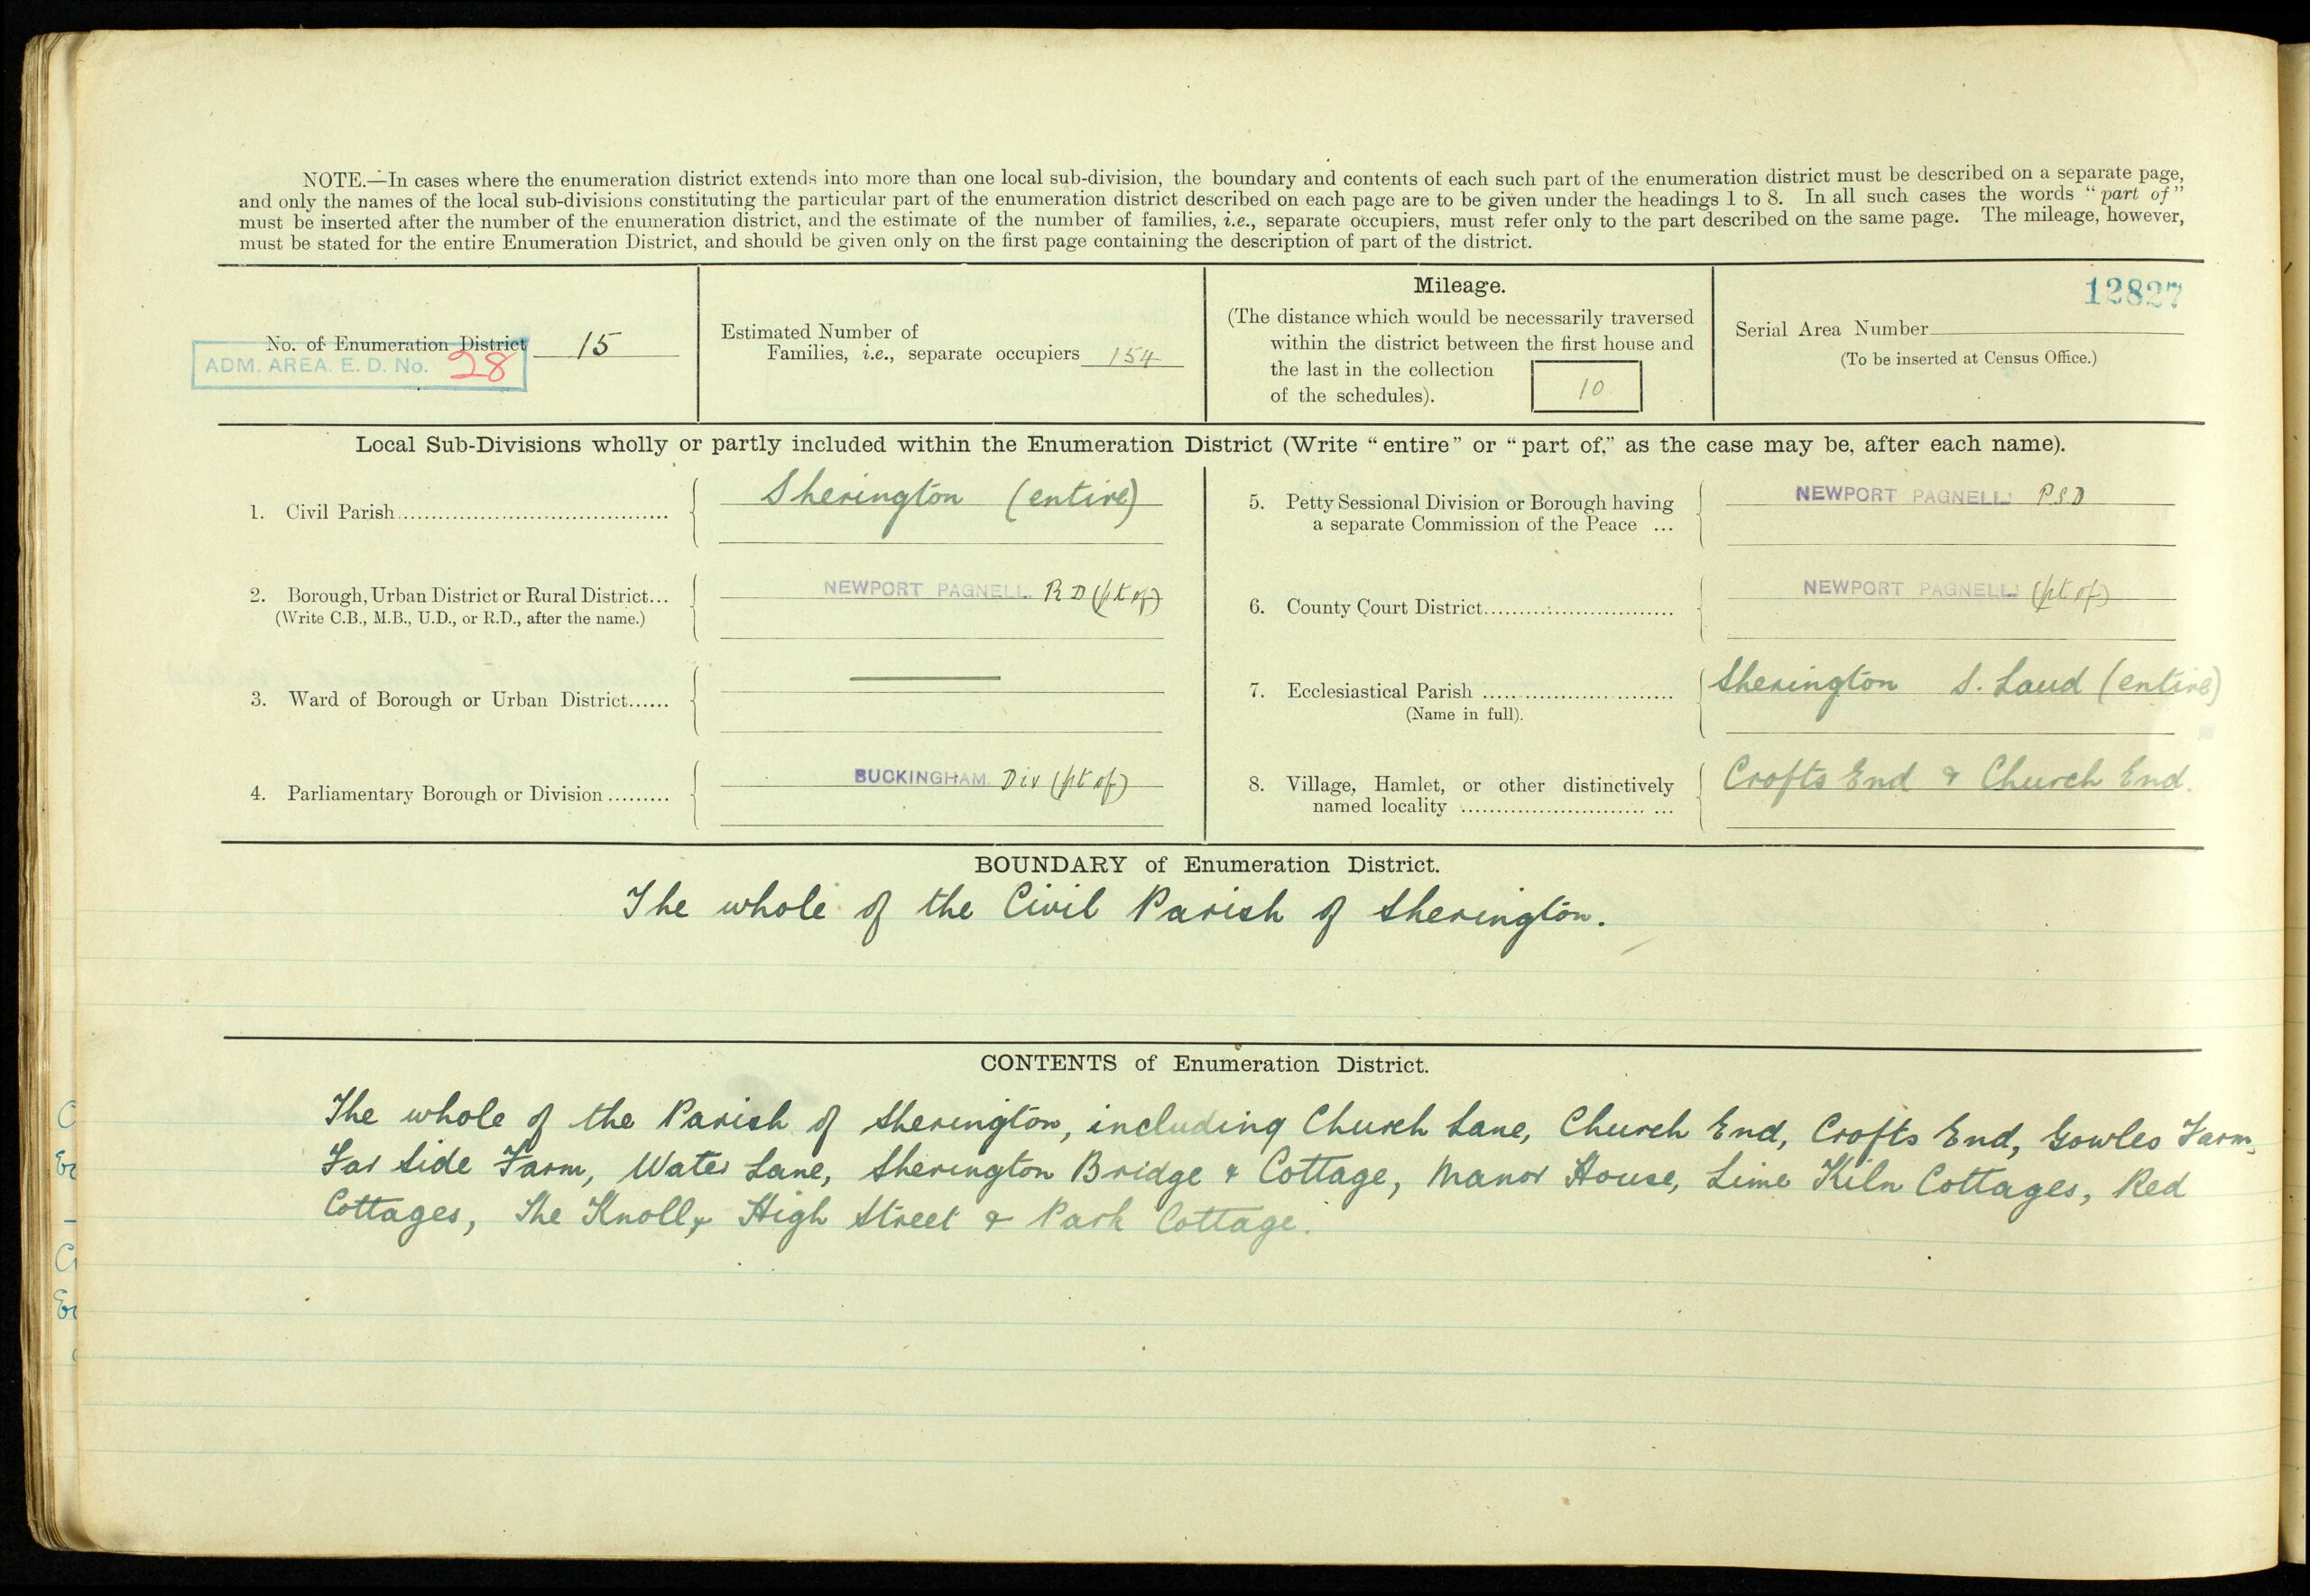 NOTE.—In cases where the enumeration district extends into more than one local sub-division, the boundary and contents of each such part of the enumeration district must be described on a separate page,
and only the names of the local sub-divisions constituting the particular part of the enumeration district described on each page are to be given under the headings 1 to 8. In all such cases the words "part of"
must be inserted after the number of the enumeration district, and the estimate of the number of families, i.e., separate occupiers, must refer only to the part described on the same page. The mileage, however,
must be stated for the entire Enumeration District, and should be given only on the first page containing the description of part of the district.
No. of Enumeration District 15
ADM. AREA. E. D. No. 28
Estimated Number of
Families, i.e., separate occupiers 154
Mileage.
(The distance which would be necessarily traversed
within the district between the first house and
the last in the collection
of the schedules). 10
12827
Serial Area Number
(To be inserted at Census Office.)
Local Sub-Divisions wholly or partly included within the Enumeration District (Write "entire" or "part of," as the case may be, after each name).
1. Civil Parish Sherington (entire)
2. Borough, Urban District or Rural District... NEWPORT PAGNELL. R D (pt of)
(Write C.B., M.B., U.D., or R.D., after the name.)
3. Ward of Borough or Urban District......
4. Parliamentary Borough or Division ......... BUCKINGHAM. Div (pt of)
5. Petty Sessional Division or Borough having NEWPORT PAGNELL. P S D
a separate Commission of the Peace ...
6. County Court District NEWPORT PAGNELL. (pt of)
7. Ecclesiastical Parish Sherington S. Laud (entire)
(Name in full).
8. Village, Hamlet, or other distinctively Crofts End & Church End.
named locality
BOUNDARY of Enumeration District.
The whole of the Civil Parish of Sherington.
CONTENTS of Enumeration District.
The whole of the Parish of Sherington, including Church Lane, Church End, Crofts End, Gowles Farm,
Far Side Farm, Water Lane, Sherington Bridge & Cottage, Manor House, Lime Kiln Cottages, Red
Cottages, The Knoll, High Street & Park Cottage.